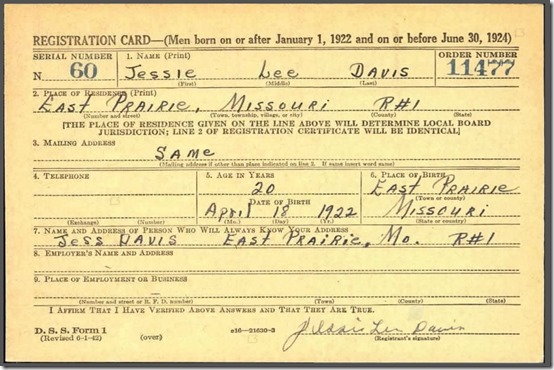 REGISTRATION CARD—(Men born on or after January 1, 1922 and on or before June 30, 1924)
SERIAL NUMBER 1. NAME (Print) ORDER NUMBER
N. 60 Jessie Lee Davis 11477
(First) (Middle) (Last)
2. PLACE OF RESIDENCE (Print)
East Prairie, Missouri R#1
(Number and street) (Town, township, village, or city) (County) (State)
[THE PLACE OF RESIDENCE GIVEN ON THE LINE ABOVE WILL DETERMINE LOCAL BOARD
JURISDICTION; LINE 2 OF REGISTRATION CERTIFICATE WILL BE IDENTICAL]
3. MAILING ADDRESS
Same
(Mailing address if other than place indicated on line 2. If same insert word same)
4. TELEPHONE 5. AGE IN YEARS 6. PLACE OF BIRTH
20 East Prairie
DATE OF BIRTH (Town or county)
April 18 1922 Missouri
(Exchange) (Number) (Mo.) (Day) (Yr.) (State or country)
7. NAME AND ADDRESS OF PERSON WHO WILL ALWAYS KNOW YOUR ADDRESS
Jess Davis East Prairie, Mo. R#1
8. EMPLOYER'S NAME AND ADDRESS
9. PLACE OF EMPLOYMENT OR BUSINESS
(Number and street or R. F. D. number) (Town) (County) (State)
I AFFIRM THAT I HAVE VERIFIED ABOVE ANSWERS AND THAT THEY ARE TRUE.
D. S. S. Form 1
(Revised 6-1-42) (over) 16—21630-2 Jessie Lee Davis
(Registrant's signature)